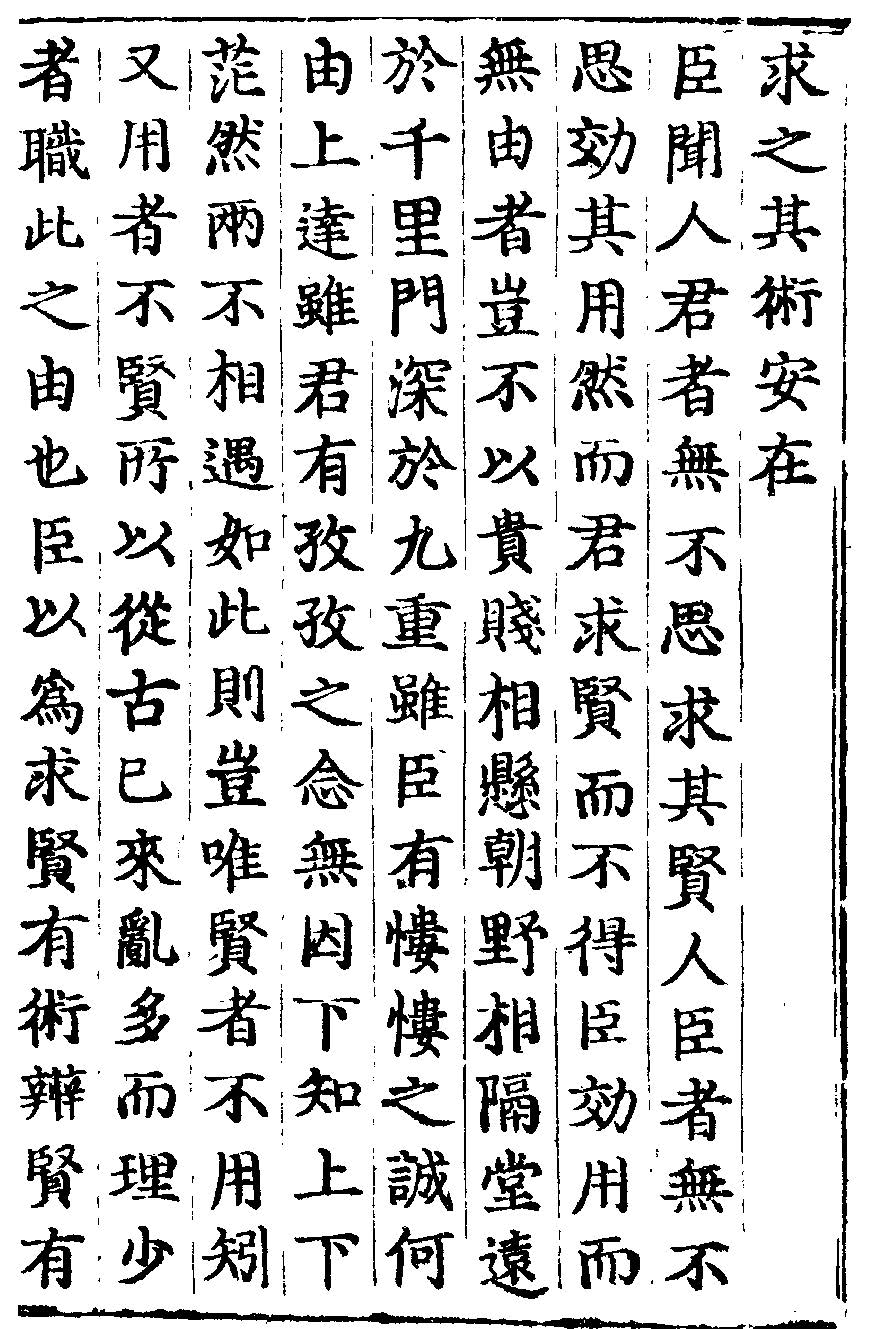 求之其術安在
臣聞人君者無不思求其賢人臣者無不
思効其用然而君求賢而不得臣効用而
無由者豈不以貴賤相懸朝野相隔堂遠
於千里門深於九重雖臣有慺慺之誠何
由上達雖君有孜孜之念無因下知上下
茫然兩不相遇如此則豈唯賢者不用矧
又用者不賢所以從古已來亂多而理少
者職此之由也臣以為求賢有術辨賢有